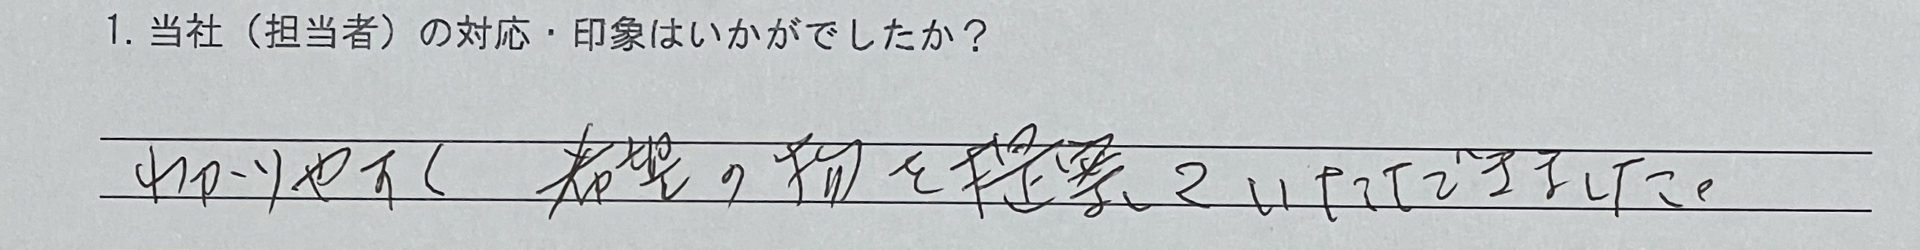 1. 当社（担当者）の対応・印象はいかがでしたか？
わかりやすく 希望の物を提案していただきました。